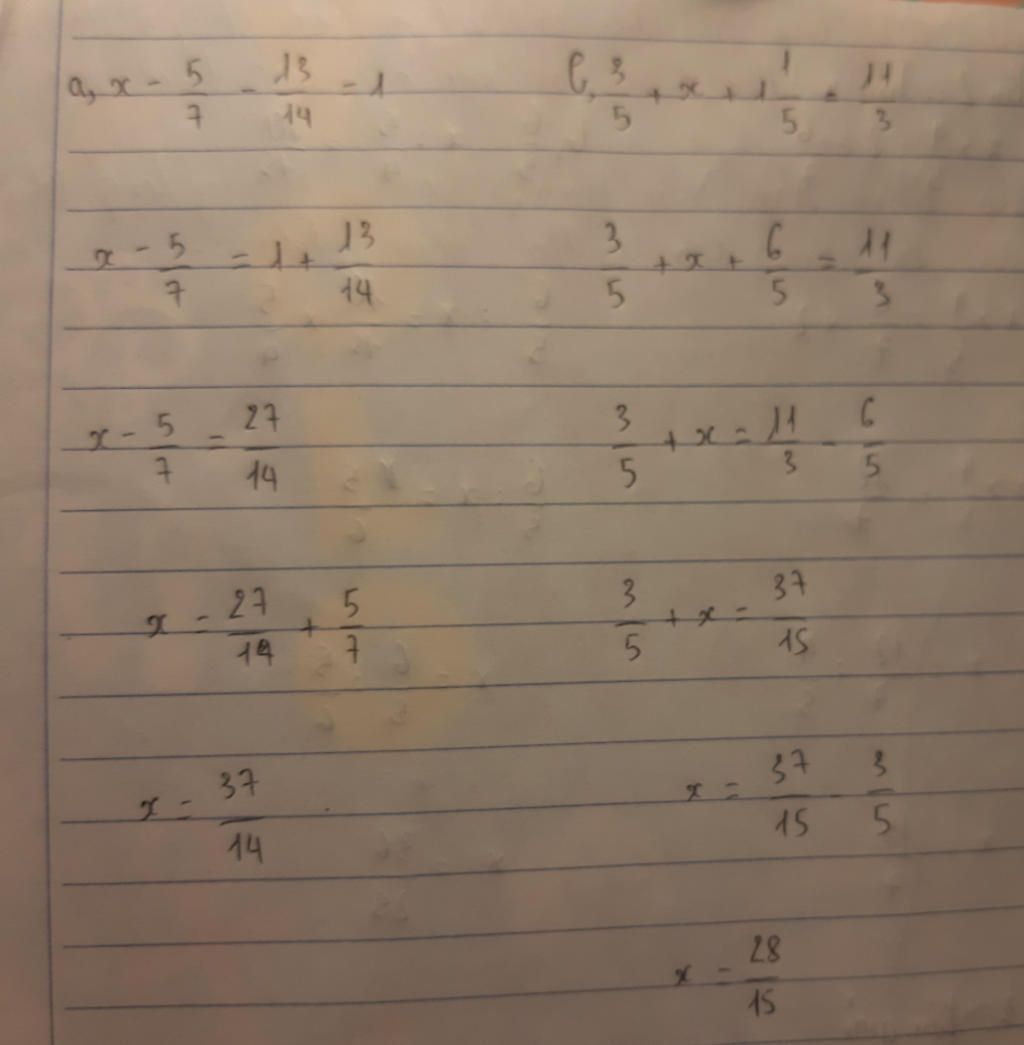 a, x - 5/7 - 13/14 = 1
x - 5/7 = 1 + 13/14
x - 5/7 = 27/14
x = 27/14 + 5/7
x = 37/14
b, 3/5 + x + 1 1/5 = 11/3
3/5 + x + 6/5 = 11/3
3/5 + x = 11/3 - 6/5
3/5 + x = 37/15
x = 37/15 - 3/5
x = 28/15